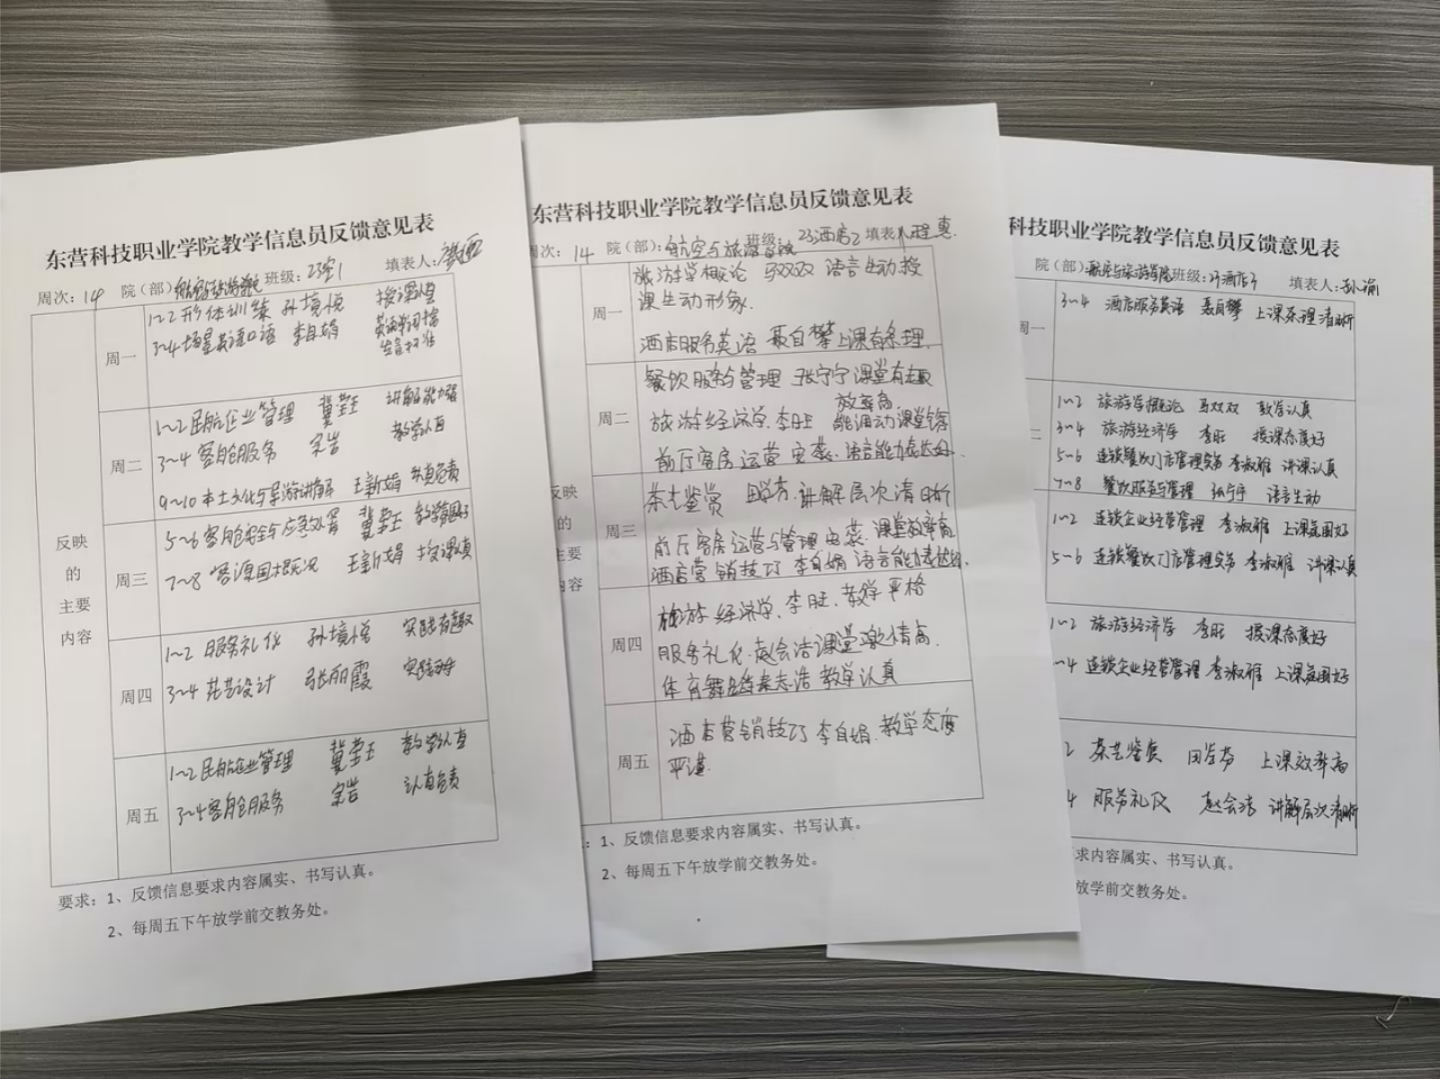 东营科技职业学院教学信息员反馈意见表
周次：14 院（部）： 班级：23空1 填表人：
反映的主要内容
周一
1~2 形体训练 孙境悦
3~4 口语 李自娟
周二
1~2 民航企业管理 冀莹玉 讲解能力强
3~4 客舱服务 宋岩 教学认真
9~10 本土文化与导游讲解 王新娟 负责
周三
5~6 客舱安全与应急处置 冀莹玉
7~8 客源国概况 王新娟 授课认真
周四
1~2 服务礼仪 孙境悦 实践有趣
3~4 花艺设计 张丽霞
周五
1~2 民航企业管理 冀莹玉 教学认真
3~4 客舱服务 宋岩 认真负责
要求：1、反馈信息要求内容属实、书写认真。
2、每周五下午放学前交教务处。
东营科技职业学院教学信息员反馈意见表
周次：14 院（部）：航空与旅游学院 班级：23酒店2 填表人 程惠
反映的主要内容
周一
旅游学概论 马双双 语言生动 授
课生动形象.
酒店服务英语 聂自攀 上课有条理.
周二
餐饮服务与管理 张宁宁 课堂有趣
旅游经济学. 李旺 能调动课堂
效率高
前厅客房运营 安蕊. 语言能力表达好.
周三
茶艺鉴赏 田学芬. 讲解层次清晰
前厅客房运营与管理 安蕊. 课堂效率高
酒店营销技巧 李自娟 语言能力表达好.
周四
旅游经济学. 李旺. 教学严格
服务礼仪. 赵会洁 课堂激情高.
体育舞蹈 秦志浩 教学认真
周五
酒店营销技巧 李自娟. 教学态度
严谨.
1、反馈信息要求内容属实、书写认真。
2、每周五下午放学前交教务处。
科技职业学院教学信息员反馈意见表
院（部） 航空与旅游学院 班级： 酒店 填表人：孙瑜
周一
3~4 酒店服务英语 聂自攀 上课条理清晰
1~2 旅游学概论 马双双 教学认真
3~4 旅游经济学 李旺 授课态度好
5~6 连锁餐饮门店管理实务 李淑雅 讲课认真
7~8 餐饮服务与管理 张宁宁 语言生动
1~2 连锁企业经营管理 李淑雅 上课氛围好
5~6 连锁餐饮门店管理实务 李淑雅 讲课认真
1~2 旅游经济学 李旺 授课态度好
~4 连锁企业经营管理 李淑雅 上课氛围好
2 茶艺鉴赏 田学芬 上课效率高
4 服务礼仪 赵会洁 讲解层次清晰
求内容属实、书写认真。
放学前交教务处。